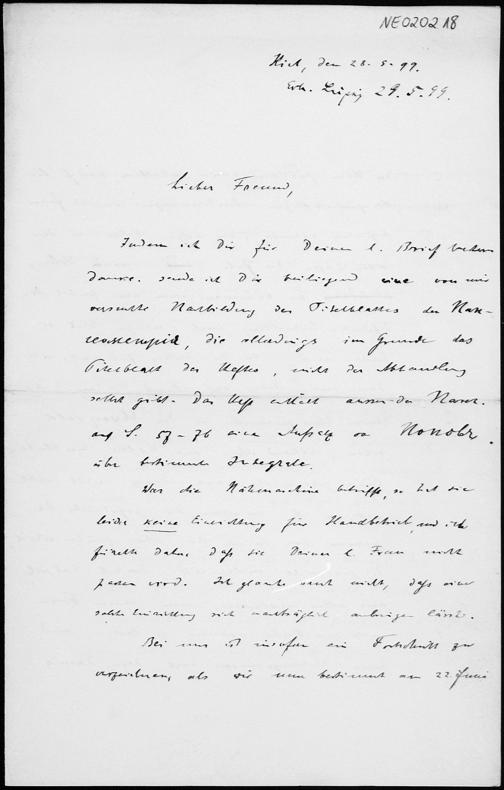 NE0202 18
Kiel, den 28.5.99.
Erh. Leipzig 29.5.99.
Lieber Freund,
Indem ich Dir für Deinen l. Brief bestens
danke, sende ich Dir beiliegend eine von mir
versuchte Nachbildung des Titelblattes der
die allerdings im Grunde das
Titelblatt des Heftes, nicht der Abhandlung
selbst giebt. Das Heft enthält ausser der
auf S. 57–76 eine Aufsatz von
über bestimmte Integrale.
Was die Nähmaschine betrifft, so hat sie
leider keine Einrichtung für Handbetrieb, und ich
fürchte daher, dass sie Deiner l. Frau nicht
passen wird. Ich glaube auch nicht, dass eine
solche Einrichtung sich nachträglich anbringen lässt.
Bei uns ist insofern ein Fortschritt zu
verzeichnen, als wir nun bestimmt am 22. Juni